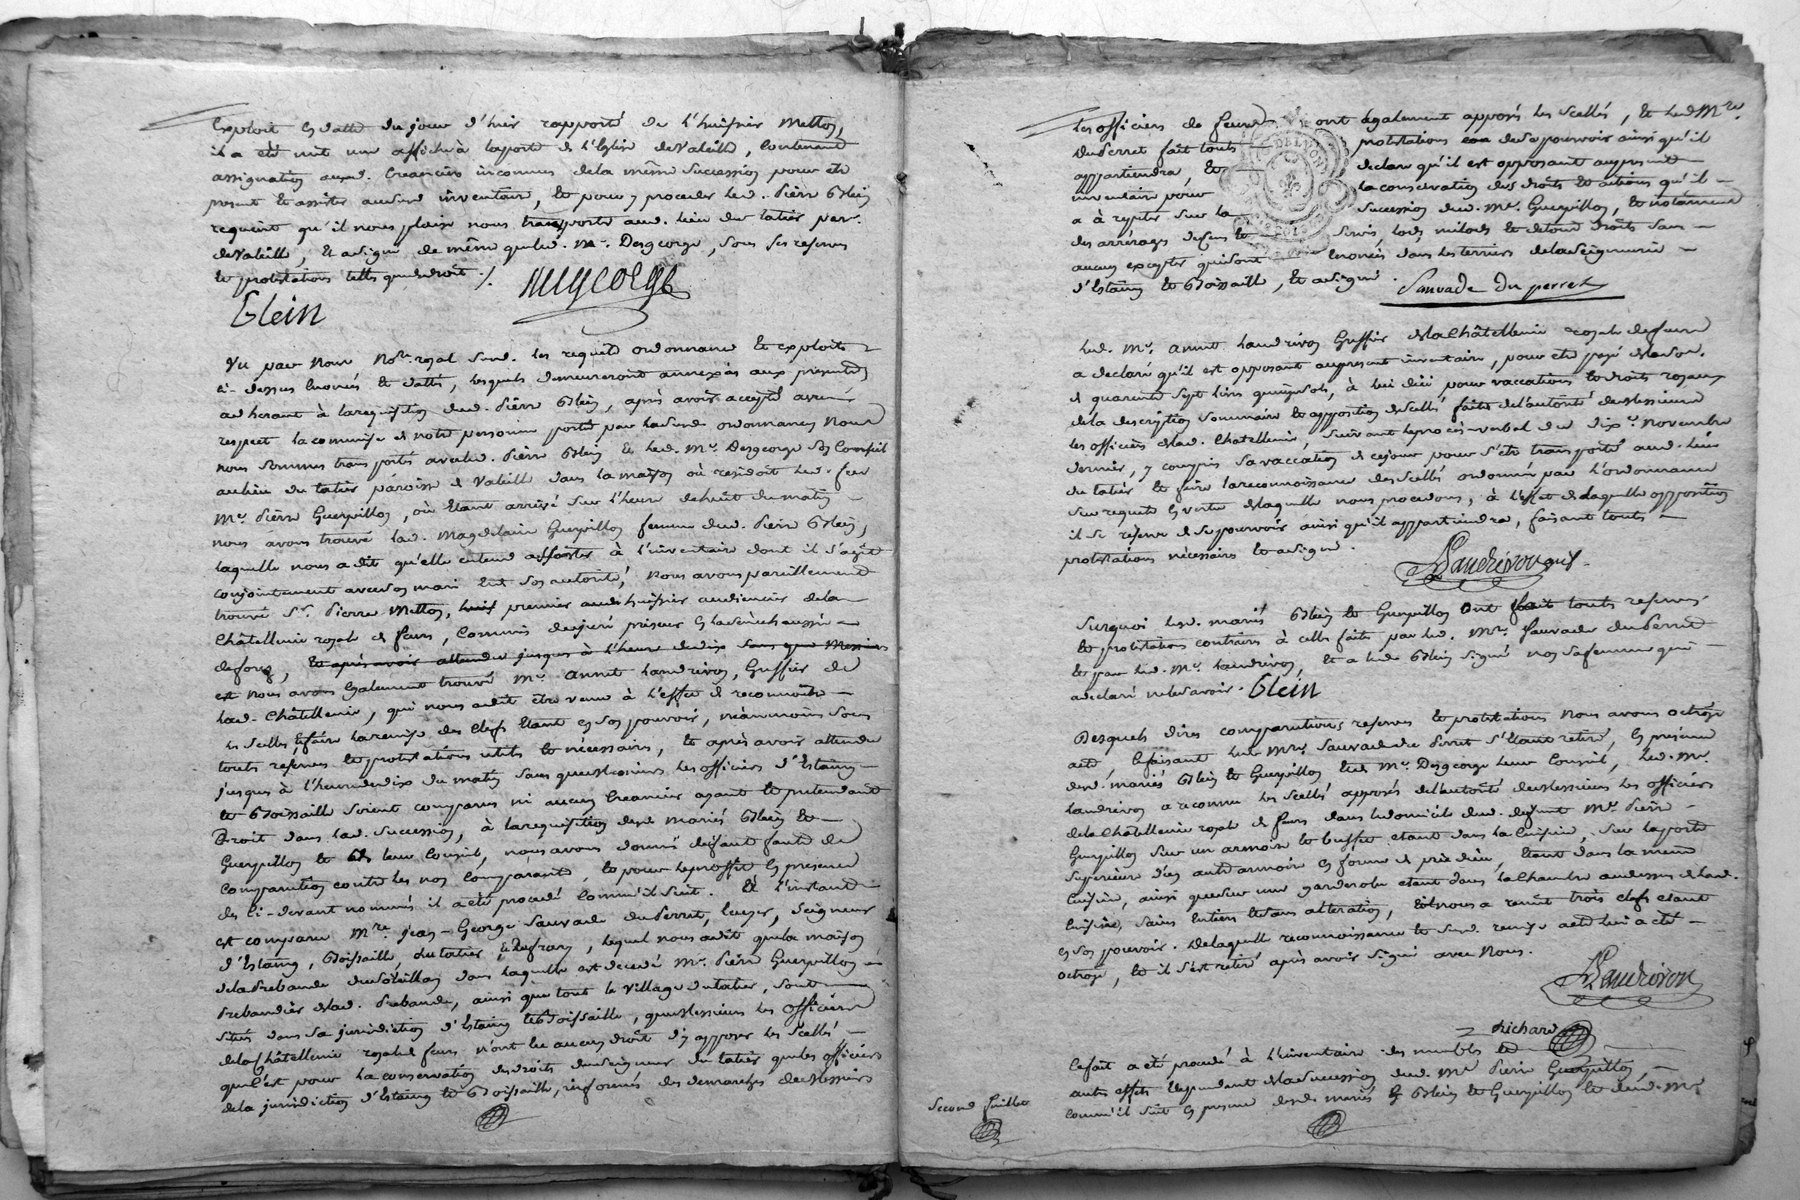 Exploit en datte du jour d'hier rapporté de l'huissier Mettoy,
il a été mit une affiche à la porte de l'Eglise de Valeille, Contenant
assignation aux d. Creanciers inconnus de la même Sucession pour etre
present et assister au susd. inventaire, et pour y proceder led. Pierre Blein
requiert qu'il nous plaise nous transporter aud. Lieu du tatier par.
de Valeille, et a signé de même que led. Me. Desgeorge, Sous ses reserves
et protestations telles que de droit ./.
Blein
Vu par Nous Not. royal Susd. les requete ordonnance et exploits
ci-dessus Enoncés et dattés, lesquels demeureront annexés aux presentes
adherant à la requisition dud. Pierre Blein, après avoir accepté avec
respect la commission de notre personne portée par lad. Susd. ordonnance, Nous
nous sommes transportés avec led. Pierre Blein et led. Me. Desgeorge Son Conseil
au lieu du tatier paroisse de Valeille dans la maison où residoit led. feu
Me. Pierre Guerpillon, où Etant arrivé Sur l'heure de huit du matin
nous avons trouvé lad. Magdelaine Guerpillon femme dud. Pierre Blein,
laquelle nous a dit qu'elle entend assister à l'inventaire dont il s'agit
conjointement avec son mari Et de son autorité, Nous avons pareillement
trouvé Sr. Pierre Mettoy, premier huissier audiencier de la
Châtellenie royale de feurs, Commis de juré priseur en la Sénéchaussée
de forez, et après avoir attendu jusques à l'heure de dix sans que Messieurs
et nous avons Egalement trouvé Me. annet Landrivon, Greffier de
lad. Châtellenie, qui nous a dit être venu à l'effet de reconnoitre
les Scellés et faire la remise des Clefs Etant en son pouvoir, néanmoins Sous
touts reserves et protestations utils et nécessaires, et après avoir attendu
jusques à l'heure de dix du matin Sans que Messieurs les officiers d'Estaing
et Boissaille Soient comparus ni aucun Creancier ayant et pretendant
Droit dans lad. Sucession, à la requisition desd. mariés Blein et
Guerpillon et de leur Conseil, nous avons donné deffaut faute de
Comparution contre les non Comparants, et pour le proffit En presence
des Ci-devant nommés il a été procédé Comm'il Suit. Et à l'instant
est comparu Mre. Jean-George Sauvade du Perret, Ecuyer, Seigneur
d'Estaing, Boissaille, du tatier, lequel nous a dit que la maison
de la Prebande dans laquelle est decedé Me. Pierre Guerpillon
Prebandier de lad. Prebande, ainsi que tout le Village du tatier, Sont
Situés dans Sa jurisdiction d'Estaing et Boissaille, que Messieurs les officiers
de la Châtellenie royale de feurs n'ont eu aucun droit d'y apposer les Scellés
que c'est pour la conservation des droits du Seigneur du tatier que les officiers
de la jurisdiction d'Estaing et Boissaille, informés des demarches de Messieurs
Les officiers de feurs ont également apposés les Scellés, Et led. Mre.
DuPerret fait touts protestations de se pourvoir ainsi qu'il
appartiendra, Et declare qu'il est opposant au present
inventaire pour la conservation des droits et actions qu'il
a à repeter Sur la Sucession dud. Me. Guerpillon, et notamment
des arrérages de cens et Servis, lods, milods et autres droits Sans
aucun excepter qui Sont Enoncés dans les terriers de la Seigneurie
d'Estaing et Boissaille, et a signé. Sauvade du perret
Led. Me. annet Landrivon Greffier de la Châtellenie royale de feurs
a declaré qu'il est opposant au present inventaire, pour etre payé de la Som.
de quarente Sept livres quinze Sols, à lui dûe pour vaccations et droits royaux
de la description Sommaire et apposition de Scellés faites de l'autorité de Messieurs
les officiers de lad. Chatellenie, Suivant le procès-verbal du dixe. novembre
dernier, y compris Sa vaccation de cejour pour S'être transporté aud. lieu
du tatier et faire la reconnoissance des Scellés ordonnée par l'ordonnance
Sur requete En vertu de laquelle nous procedons, à l'effet de laquelle opposition
il Se reserve de Se pourvoir ainsi qu'il appartiendra, faisant touts
protestations nécessaires et a signé.
Landrivon gref.
Surquoi Lesd. mariés Blein et Guerpillon ont fait touts reserves
et protestations contraires à celles faites par led. Mre. Sauvade DuPerret
et par led. Me. Landrivon, Et a led. Blein Signé non Sa femme qui
a declaré ne le Savoir. Blein
Desquels dires comparutions reserves et protestations Nous avons octroyé
acte, Ce faisant led. Mre. Sauvade du Perret S'étant retiré, En presence
desd. mariés Blein et Guerpillon et de Me. Desgeorge leur Conseil, led. Me.
Landrivon a reconnu les Scellés apposés de l'autorité de Messieurs les officiers
de la Châtellenie royale de feurs dans le domicile dud. defunt Me. Pierre
Guerpillon Sur un armoire et buffet etant dans la Cuisine, Sur la porte
Superieure d'un autre armoire en forme de prie dieu, Etant dans la meme
Cuisine, ainsi que Sur une garderobe etant dans la Chambre au dessus de lad.
Cuisine, Sains Entiers et Sans alteration, Et nous a remit trois clefs etant
en Son pouvoir. De laquelle reconnoissance et Susd. remise acte lui a été
octroyé, Et il s'est retiré après avoir Signé avec Nous.
Landrivon
Richard
Ce fait a été procedé à l'inventaire des meubles et
autres effets dependant de la Sucession dud. Me. Pierre Guerpillon,
comm'il Suit En presence desd. mariés Blein et Guerpillon et dud. Me
Second feuillet